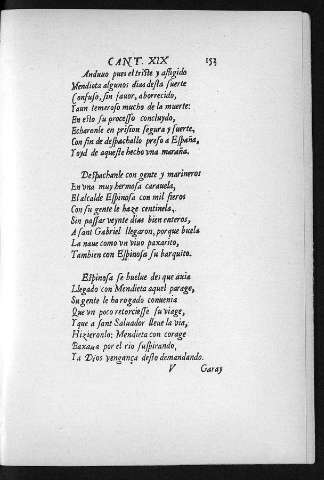 CANT. XIX 153
Anduuo pues el triste y afligido
Mendieta algunos dias desta suerte
Confuso, sin fauor, aborrecido,
Y aun temeroso mucho de la muerte:
En esto su processo concluydo,
Echaronle en prision segura y fuerte,
Con fin de despachallo preso a España,
Y oyd de aqueste hecho vna maraña.
Despachanle con gente y marineros
En vna muy hermosa carauela,
El alcalde Espinosa con mil fieros
Con su gente le haze centinela,
Sin passar veynte dias bien enteros,
A sant Gabriel llegaron, porque buela
La naue como vn viuo paxarito,
Tambien con Espinosa su barquito.
Espinosa se buelue des que auia
Llegado con Mendieta aquel parage,
Su gente le ha rogado conuenia
Que vn poco retorciesse su viage,
Y que a sant Saluador lleue la via,
Hizieronlo: Mendieta con corage
Baxaua por el rio suspirando,
Y a Dios vengança desto demandando.
V Garay